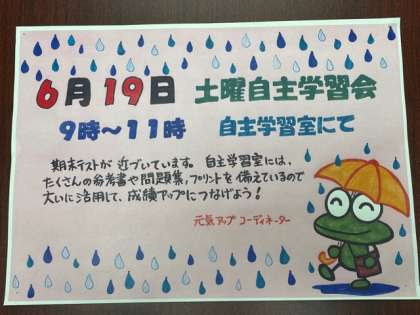 6月19日 土曜自主学習会
9時～11時 自主学習室にて
期末テストが近づいています。自主学習室には、
たくさんの参考書や問題集,プリントを備えているので
大いに活用して、成績アップにつなげよう!
元気アップコーディネーター